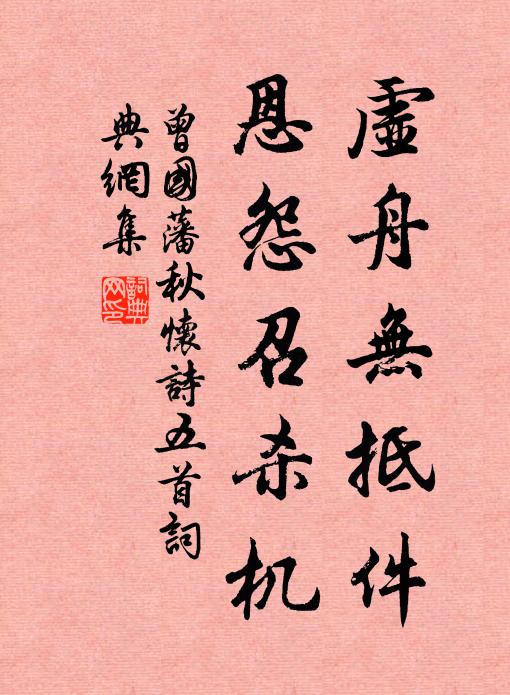 虛舟無抵件
恩怨召杀机
曾國藩秋懷詩五首詞
典網集
詞典
网印